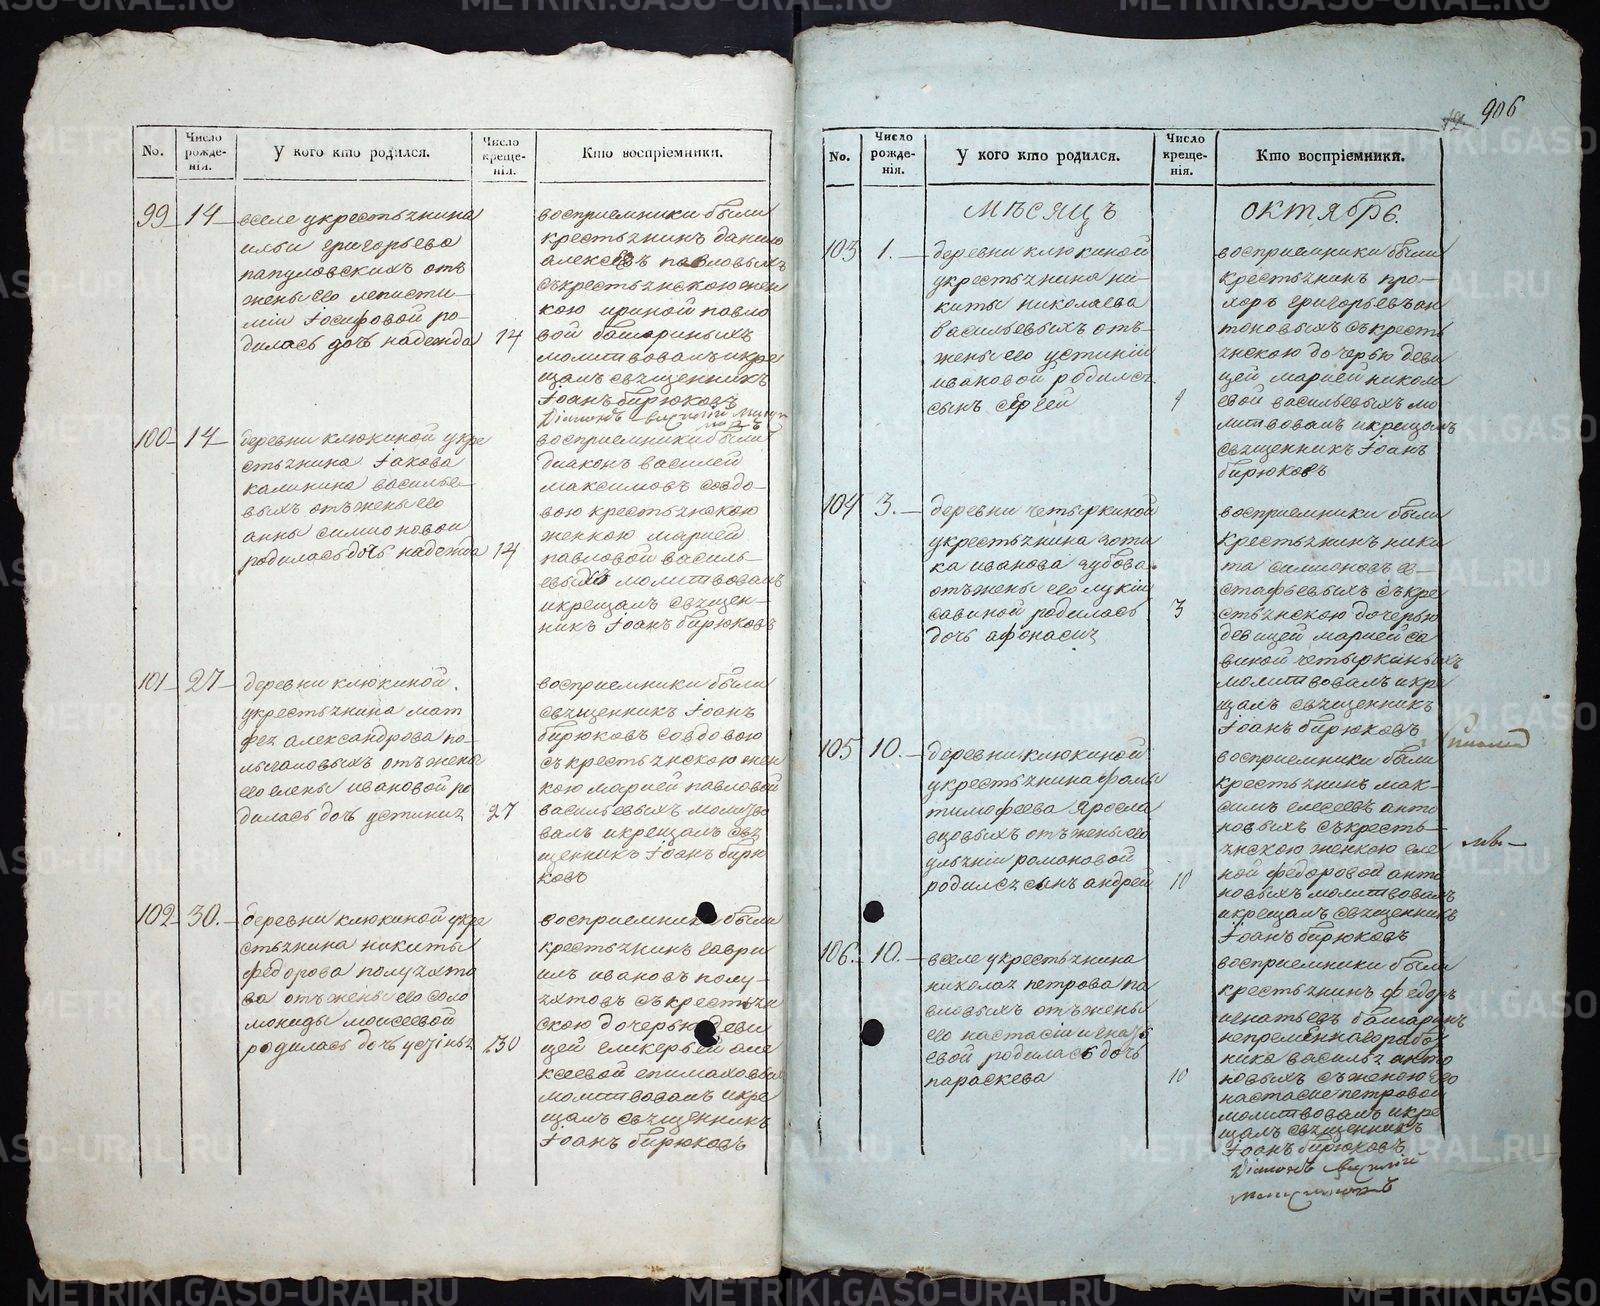 No.
Число рожде- нія.
У кого кто родился.
Число креще- нія.
Кто воспріемники.
99
14
вселе укрестьянина
ильи григорьева
папуловскихъ отъ
жены его леписти-
міи Іосифовой ро-
дилась дочь надежда
14
восприемники были
крестьянинъ данило
алексеевъ павловыхъ
съкрестьянскою жен
кою ириной павло
вой батариныхъ
молитвовалъ икре
щалъ священникъ
Іоанъ бирюковъ
Діаконъ
100
14
деревни клюкиной укре
стьянина Іакова
калинина василье-
выхъ отъжены его
анны симионовой
родилась дочь надежда
14
восприемники были
диаконъ василей
максимовъ совдо-
вою крестьянскою
женкою марией
павловой василь-
евыхъ молитвовалъ
икрещалъ священ-
никъ Іоанъ бирюковъ
101
27
деревни клюкиной
укрестьянина мат
фея александрова по-
лыгаловыхъ отъжены
его елены ивановой ро
дилась дочь устиния
27
восприемники были
священникъ Іоанъ
бирюковъ совдовою
съкрестьянскою жен
кою марией павловой
васильевыхъ молитво
валъ икрещалъ свя
щенникъ Іоанъ бирю
ковъ
102
30.
деревни клюкиной укре
стьянина никиты
федорова полуяхто
ва отъжены его соло
мониды моисеевой
родилась дочь устинья
30
восприемники были
крестьянинъ гаври
илъ ивановъ полу-
яхтовъ съкрестьян
скою дочерью деви
цей гликерьей але
ксеевой епимаховых
молитвовалъ икре
щалъ священникъ
Іоанъ бирюковъ
906
No.
Число рожде- нія.
У кого кто родился.
Число креще- нія.
Кто воспріемники.
мѣсяцъ
октябрь.
103
1.
деревни клюкиной
укрестьянина ни-
киты николаева
васильевыхъ отъ-
жены его устиніи
ивановой родился
сынъ сергей
1
восприемники были
крестьянинъ про-
хоръ григорьевъ ан
тоновыхъ съкресть
янскою дочерью деви
цей марией никола
евой васильевыхъ мо
литвовалъ икрещалъ
священникъ Іоанъ
бирюковъ
104
3.
деревни четыркиной
укрестьянина
ка иванова зубова
отъжены его лукіи
савиной родилась
дочь афонасия
3
восприемники были
крестьянинъ ники
та симионовъ ев-
стафьевыхъ съкре
стьянскою дочерью
девицей марией са
виной четыркиныхъ
молитвовалъ икре
щалъ священникъ
Іоанъ бирюковъ
105
10.
деревни клюкиной
укрестьянина фомы
тимофеева яросла
вцовыхъ отъжены его
ульяніи романовой
родился сынъ андрей
10
восприемники были
крестьянинъ мак-
симъ елесеевъ анто
новыхъ съкресть-
янскою женкою еле
ной федоровой анто
новыхъ молитвовалъ
икрещалъ священникъ
Іоанъ бирюковъ
106.
10.
вселе укрестьянина
николая петрова па
вловыхъ отъжены
его настасіи игнать
евой родилась дочь
параскева
10
восприемники были
крестьянинъ федоръ
игнатьевъ батаринъ
непременнагорабо
ника василья анто
новыхъ съженою его
настасие петровой
молитвовалъ икре
щалъ священникъ
Іоанъ бирюковъ
Діаконъ василій